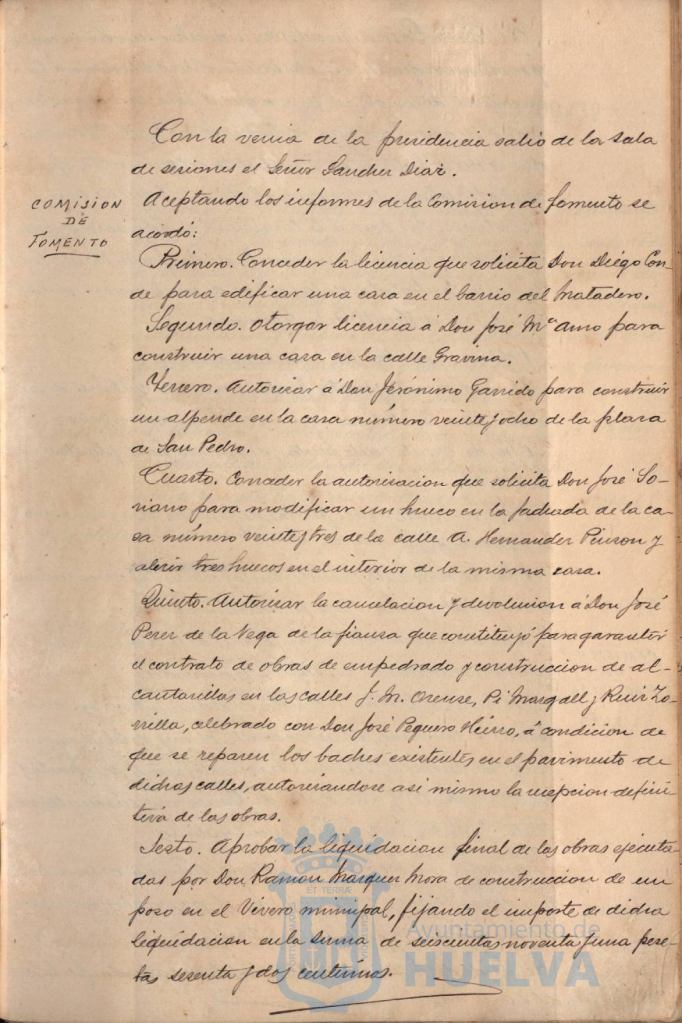 Con la venia de la presidencia salio de la sala
de sesiones el Señor Sanchez Diaz.
COMISION
DE
FOMENTO
Aceptando los informes de la Comision de fomento se
acordó:
Primero. Conceder la licencia que solicita Don Diégo Con-
de para edificar una casa en el barrio del Matadero.
Segundo. Otorgar licencia á Don José Mª Amo para
construir una casa en la calle Gravina.
Tercero. Autorizar á Don Jerónimo Garrido para construir
un alpende en la casa número veinte y ocho de la plaza
de San Pedro.
Cuarto. Conceder la autorizacion que solicita Don José So-
riano para modificar un hueco en la fachada de la ca-
sa número veinte y tres de la calle A. Hernandez Pinzon y
abrir tres huecos en el interior de la misma casa.
Quinto. Autorizar la cancelacion y devolucion á Don José
Perez de la Vega de la fianza que constituyó para garantir
el contrato de obras de empedrado y construccion de al-
cantarillas en las calles J. M. Orense, Pi Margall y Ruiz Zo-
rrilla, celebrado con Don José Peguero Hierro, á condicion de
que se reparen los baches existentes en el pavimento de
dichas calles, autorizandose asi mismo la recepcion defini-
tiva de las obras.
Sexto. Aprobar la liquidacion final de las obras ejecuta-
das por Don Ramon Marquez Mora de construccion de un
poso en el Vivero munipal, fijando el importe de dicha
liquidacion en la suma de seiscientas noventa y una pese-
tas sesenta y dos centimos.
ET TERRA
Ayuntamiento de
HUELVA